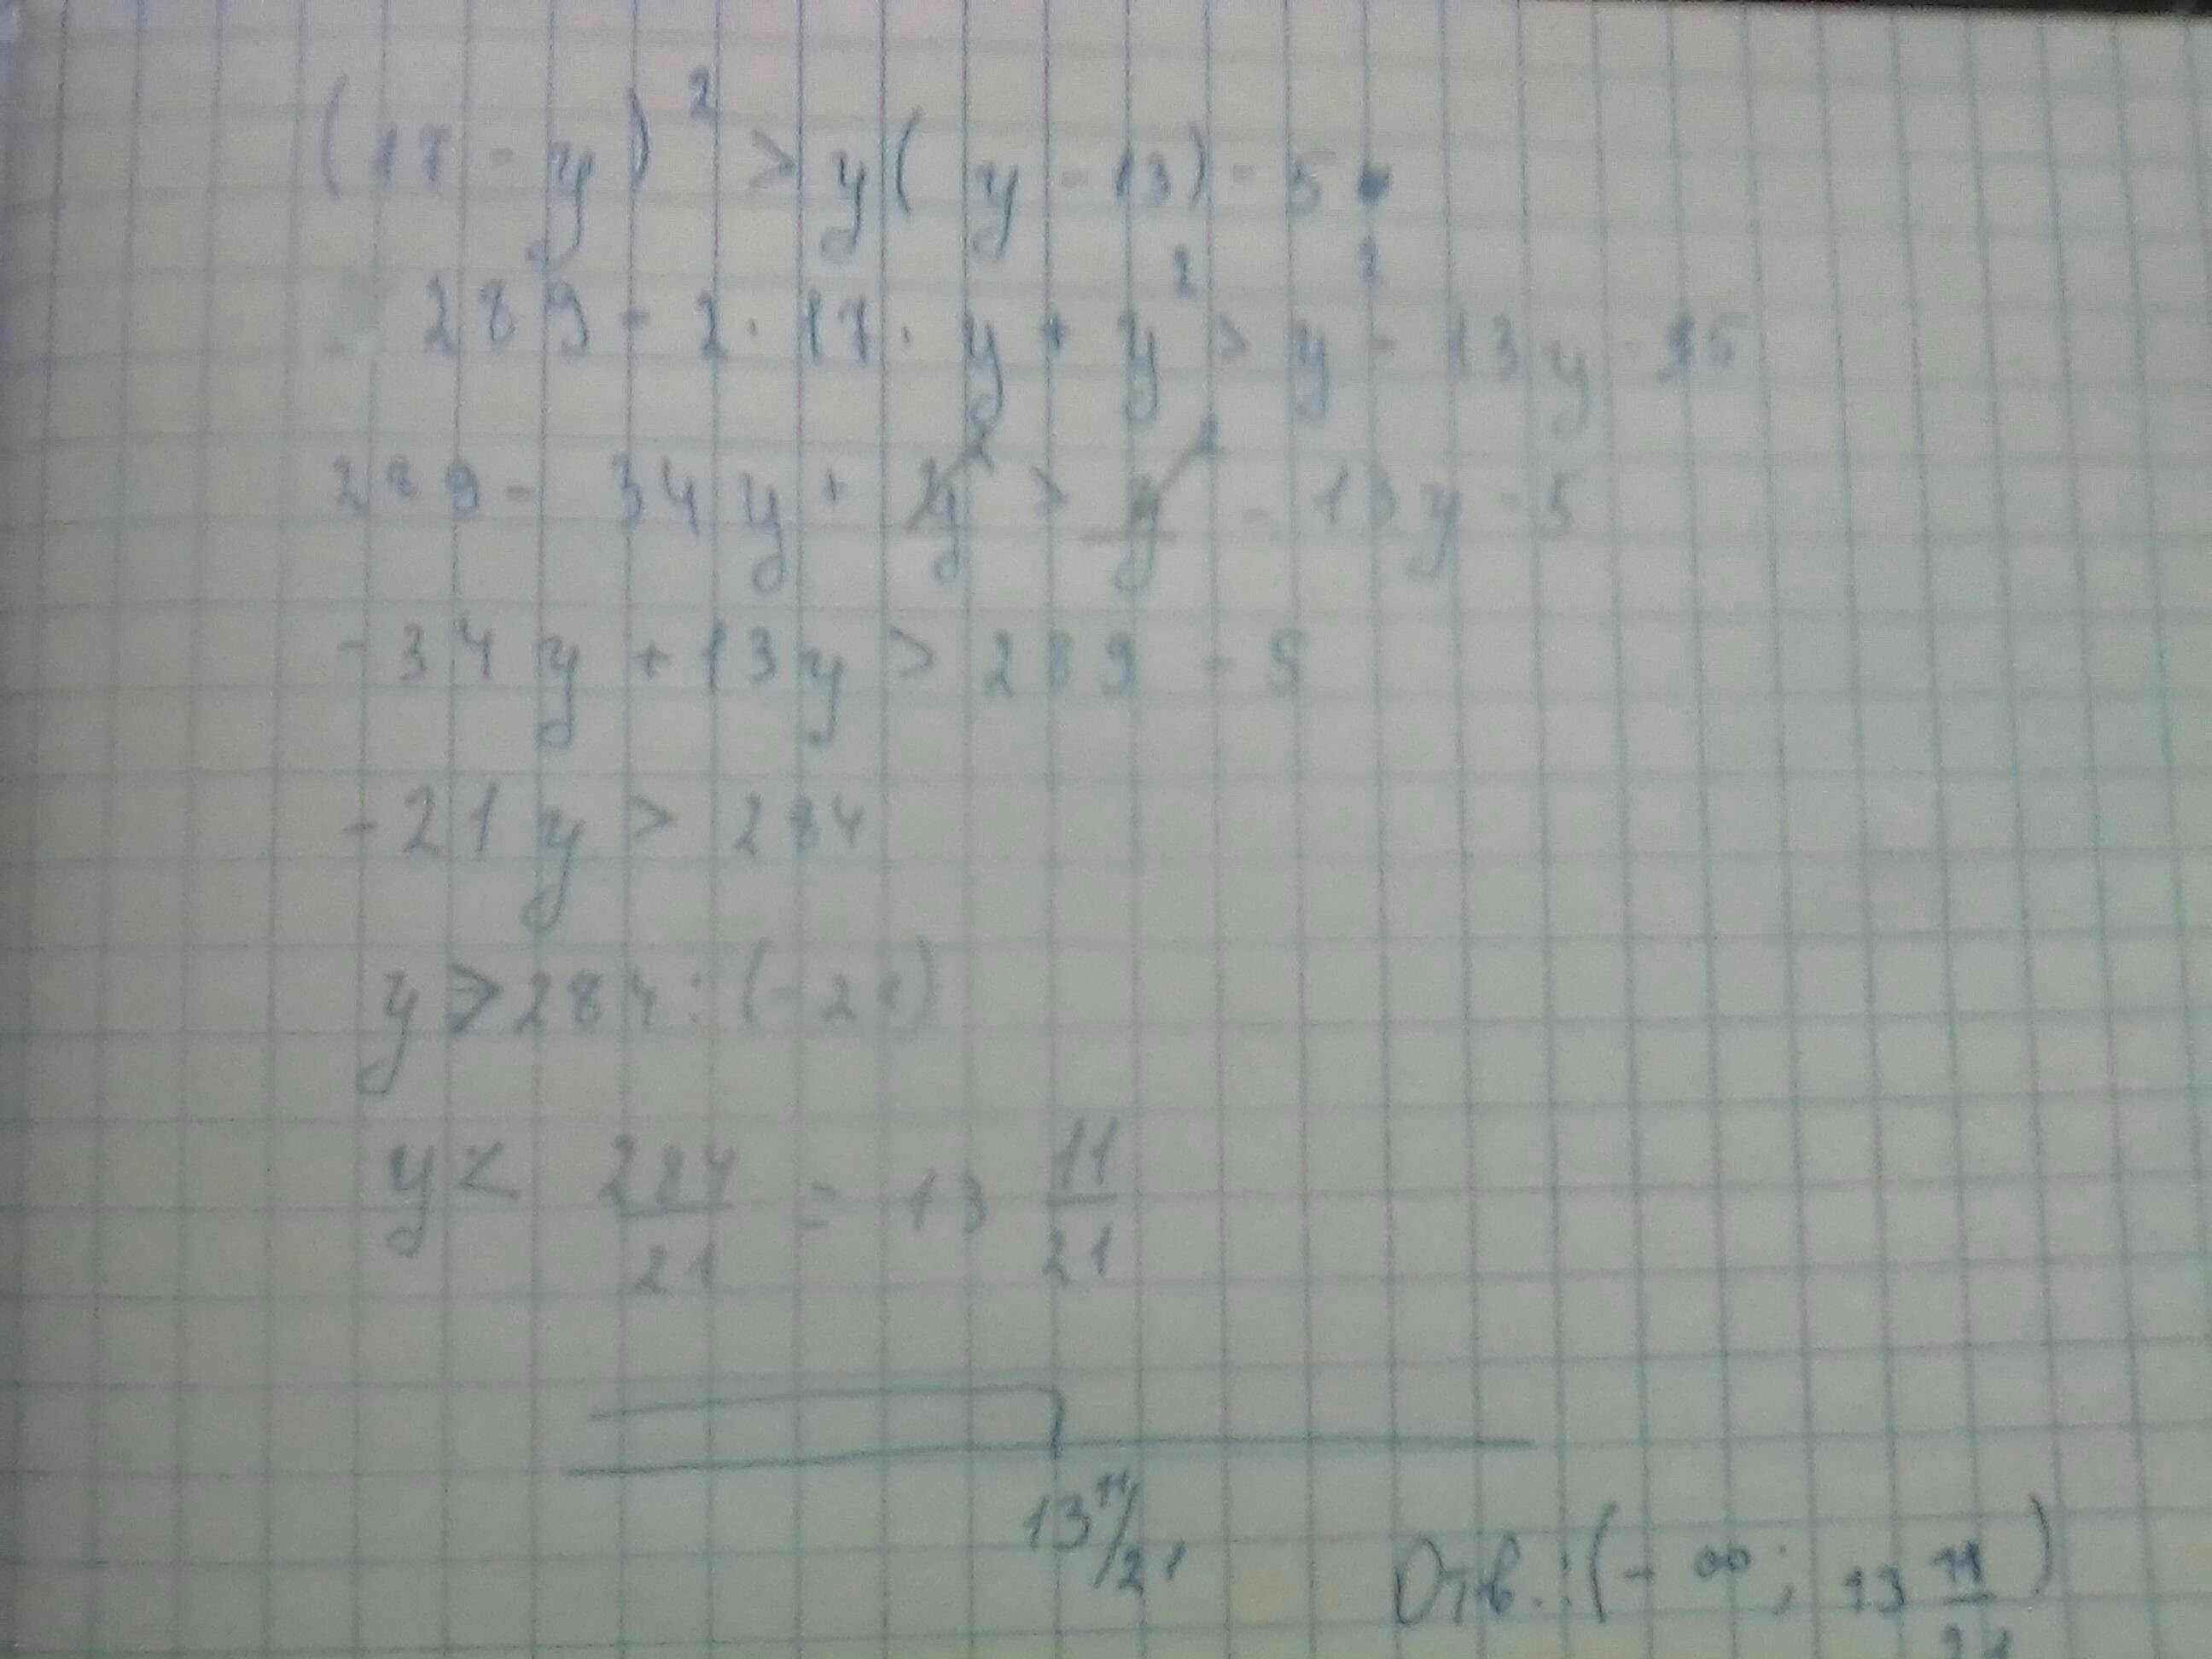 (17 - y)² > y(y - 13) - 5
289 - 2 · 17 · y + y² > y² - 13y - 5
289 - 34y + y² > y² - 13y - 5
-34y + 13y > 289 - 5
-21y > 284
y > 284 : (-21)
y < 284/21 = 13 11/21
13 11/21
Отв.: (-∞; 13 11/21)